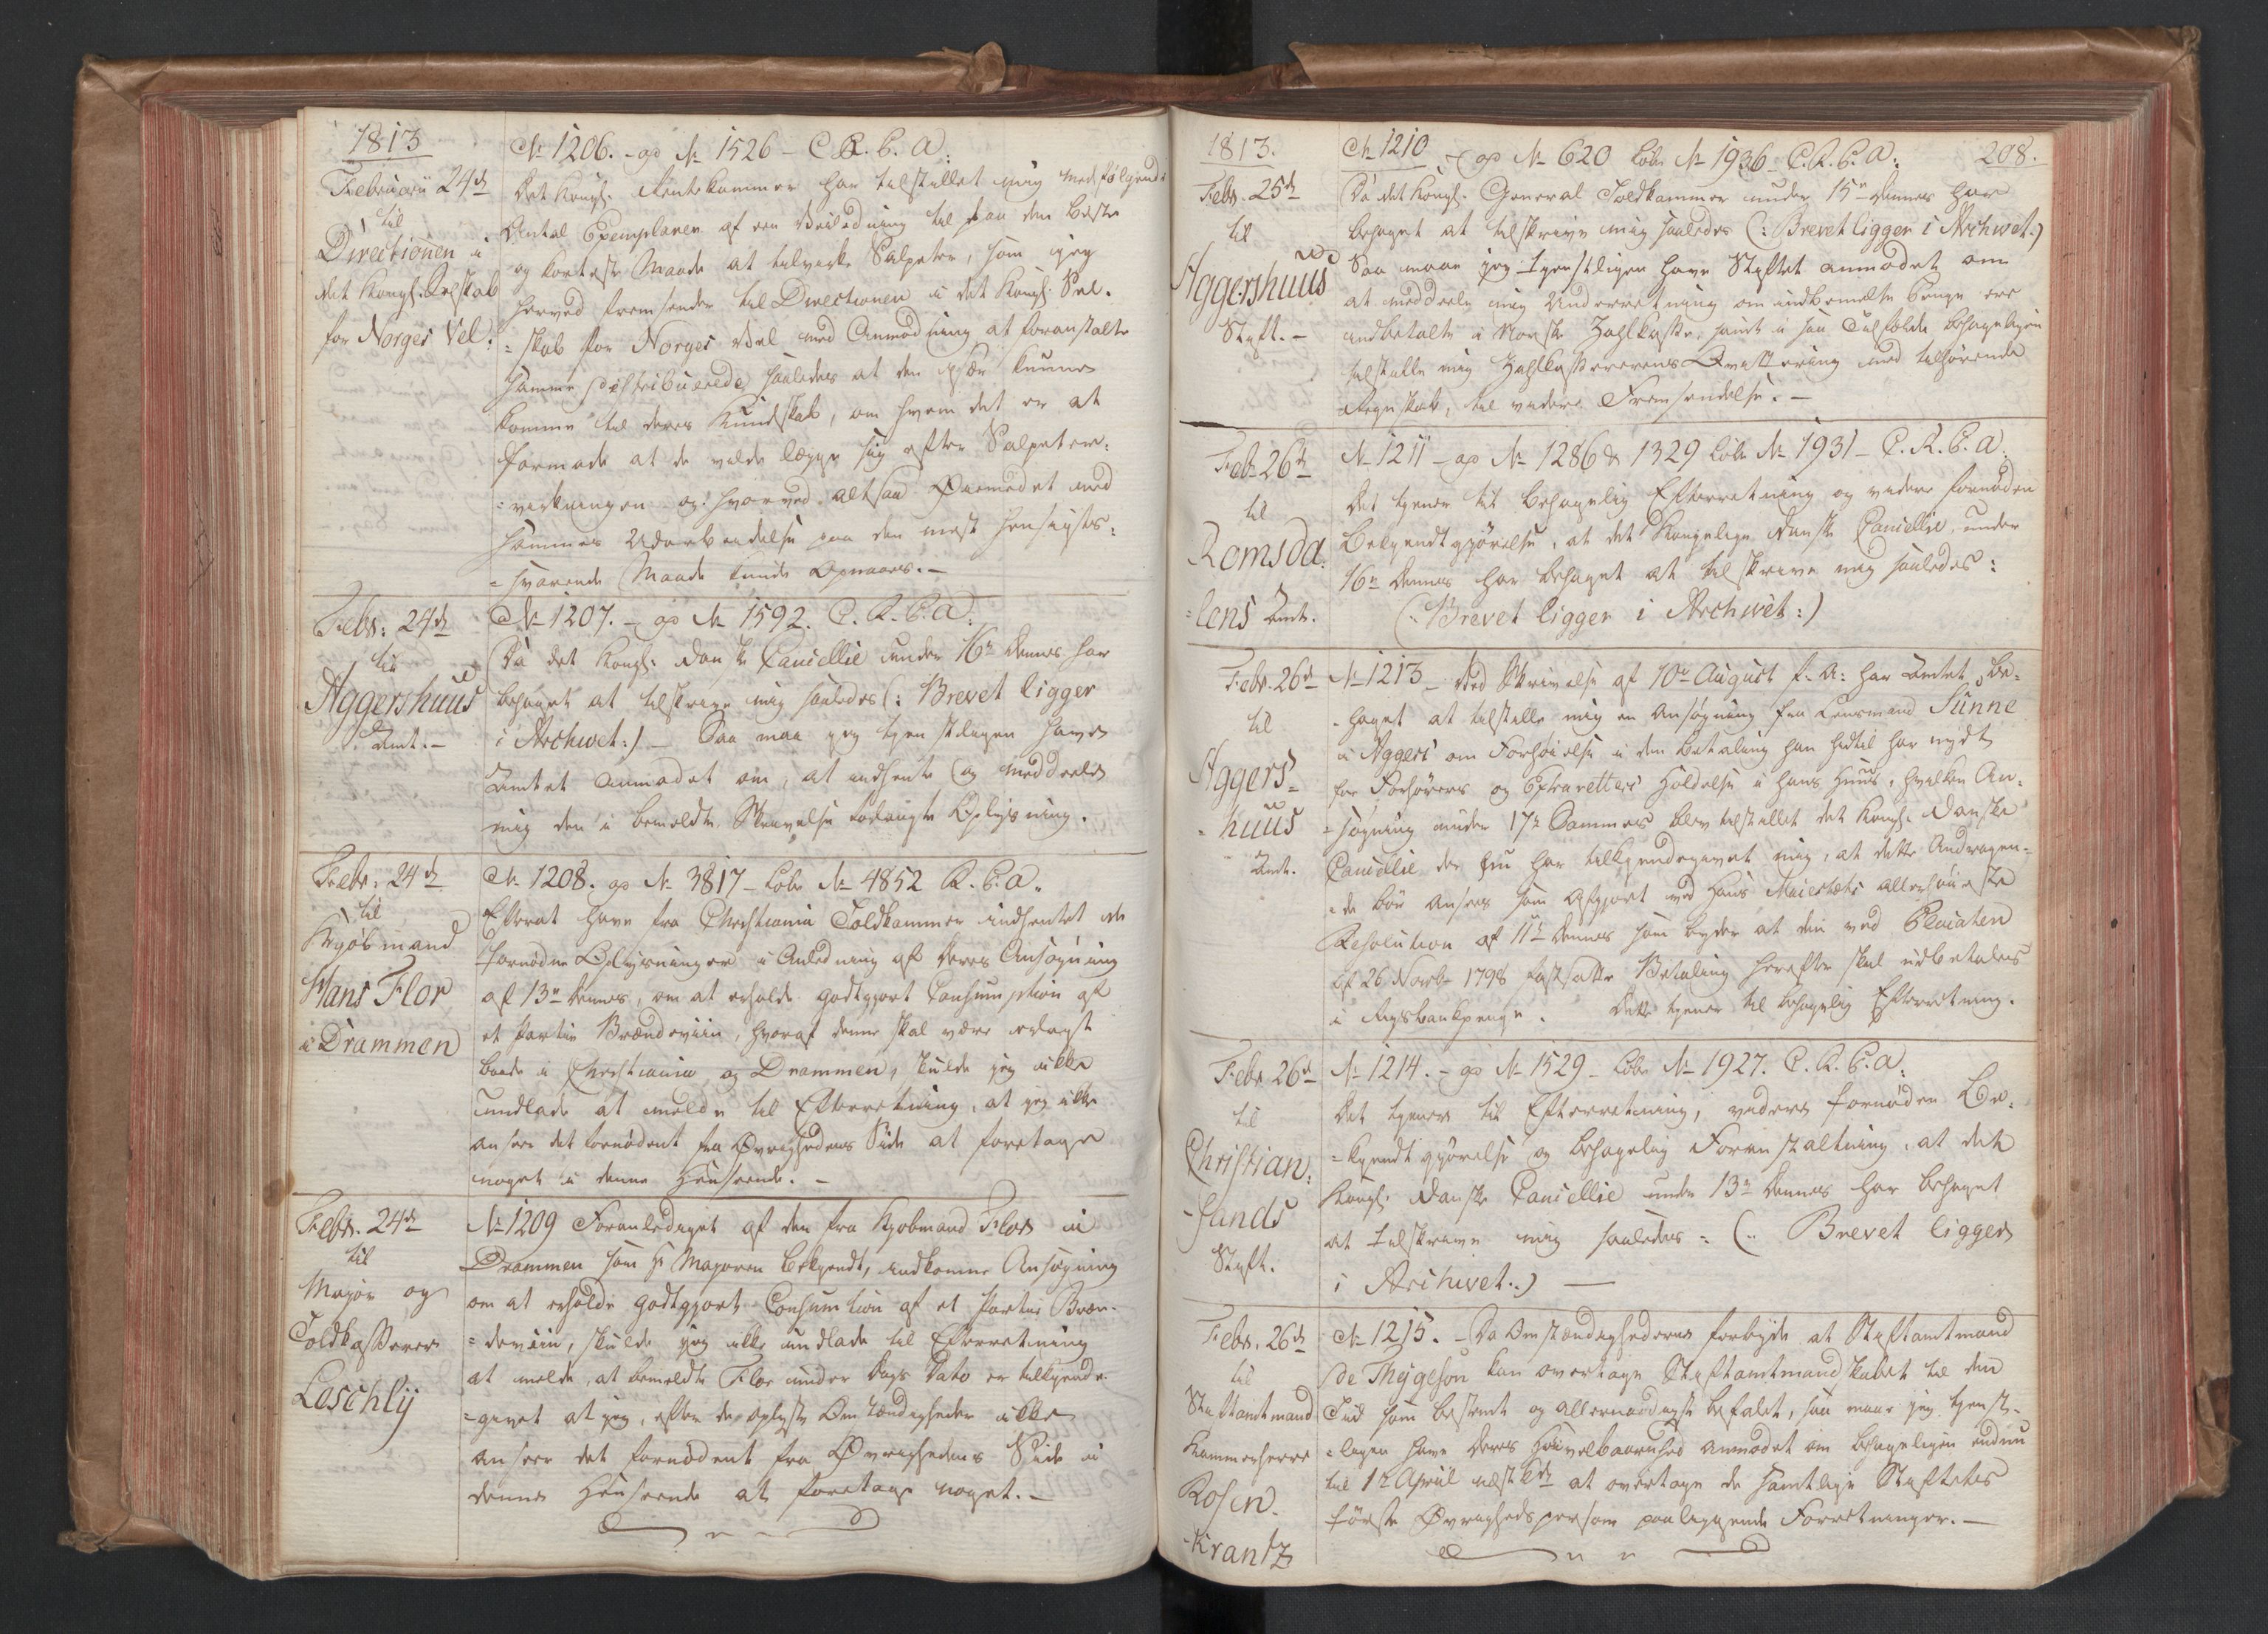 1813
Februarii 24de
til
Directionen i
det Kongl. Selskab
for Norges Vel.
No 1206. - ad No 1526 - C. R. C. A.
Det Kongl. Rentekammer har tilstillet mig medfølgende
Antal Exemplarer af en Veiledning til paa den beste
og korteste Maade at tilvirke Salpeter, som jeg
herved fremsender til Directionen i det Kongl. Sel-
=skab for Norges Vel med Anmodning at foranstalte
samme distribuerede saaledes at den især kunne
komme til deres Kundskab, om hvem det er at
formode at de vilde lægge sig efter Salpeter-
=virkningen og hvorved altsaa Øiemedet med
sammes Udarbeidelse paa den mest hensigts-
=svarende Maade kunde opnaaes. -
Febr: 24de
til
Aggershuus
Amt. -
No 1207. - ad No 1592. C. R. C. A.
Da det Kongl. danske Cancellie under 16de dennes har
behaget at tilskrive mig saaledes (: Brevet ligger
i Archivet :) - Saa maa jeg tienstligen have
Amtet anmodet om, at indhente og meddeele
mig den i bemeldte Skrivelse forlangte Oplysning.
Febr. 24de
til
Kjøbmand
Hans Flor
i Drammen
No 1208. ad No 3817 - Løbe No 4852 R. C. A.
Efterat have fra Christiania Toldkammer indhentet de
fornødne Oplysninger i Anledning af Deres Ansøgning
af 13de dennes, om at erholde godtgjort Consumption af
et Partie Brændeviin, hvoraf denne skal være erlagt
baade i Christiania og Drammen, skulde jeg ikke
undlade at melde til Efterretning, at jeg ikke
anseer det fornødent fra Øvrighedens Side at foretage
noget i denne Henseende. -
Febr. 24de
til
Major og
Toldkasserer
Leschly
No 1209 Foranlediget af den fra Kjøbmand Flor i
Drammen som Hr Majoren bekjendt, indkomne Ansøgning
om at erholde godtgjort Consumtion af et Partie Bræn-
=deviin, skulde jeg ikke undlade til Efterretning
at melde, at bemeldte Flor under Dags Dato er tilkjende-
=givet at jeg, efter de oplyste Omstændigheder ikke
anseer det fornødent fra Øvrighedens Side i
denne Henseende at foretage noget. -
1813.
208.
Febr. 25de
til
Aggershuus
Stift. -
No 1210 - ad No 620 Løbe No 1936 C. R. C. A.
Da det Kongl. General Toldkammer under 15de dennes har
behaget at tilskrive mig saaledes (: Brevet ligger i Archivet :)
Saa maae jeg tienstligen have Stiftet anmodet om
at meddeele mig Underretning om indbemeldte Penge ere
indbetalte i Norske Zahlkasse, samt i saa Tilfælde behageligen
tilstille mig Zahlkassererens Qvittering med tilhørende
Regnskab, til videre Fremsendelse. -
Febr 26de
til
Romsda-
=lens Amt.
No 1211 - ad No 1286 & 1329 Løbe No 1931 - C. R. C. A.
Det tjener til behagelig Efterretning og videre fornøden
Bekjendtgjørelse, at det Kongelige danske Cancellie under
16de dennes har behaget at tilskrive mig saaledes:
(: Brevet ligger i Archivet :)
Febr. 26de
til
Aggers-
=huus
Amt.
No 1213 - Ved Skrivelse af 10de August f. A. har Amtet be-
=haget at tilstille mig en Ansøgning fra Lensmand Sunne
i Agger om Forhøielse i den Betaling han hidtil har nydt
for Forhørers og Extraretters Holdelse i hans Huus, hvilken An-
=søgning under 17de Sammes blev tilstillet det Kongl. danske
Cancellie der nu har tilkjendegivet mig, at dette Andragen-
=de bør ansees som afgjort ved Hans Majestæts allerhøieste
Resolution af 11te dennes som byder at den ved Placaten
af 26 Novbr 1798 fastsatte Betaling herefter skal udbetales
i Rigsbankpenge. Dette tjener til behagelig Efterretning.
Febr 26de
til
Christian-
=sands
Stift.
No 1214. - ad No 1529 - Løbe No 1927. C. R. C. A.
Det tjener til Efterretning, videre fornøden Be-
=kjendtgjørelse og behagelig Foranstaltning, at det
Kongl. danske Cancellie under 13de dennes har behaget
at tilskrive mig saaledes = (: Brevet ligger
i Archivet :) -
Febr. 26de
til
Stiftamtmand
Kammerherre
Rosen-
=krantz
No 1215. - Da Omstændighederne forbyde at Stiftamtmand
de Thygeson kan overtage Stiftamtmandskabet til den
Tid som bestemt og allernaadigst befalet, saa maae jeg tjenst-
=ligen have Deres Høivelbaarenhed anmodet om behageligen endnu
til 1te April næstk. at overtage de samtlige Stiftets
første Øvrighedsperson paaliggende Forretninger. -